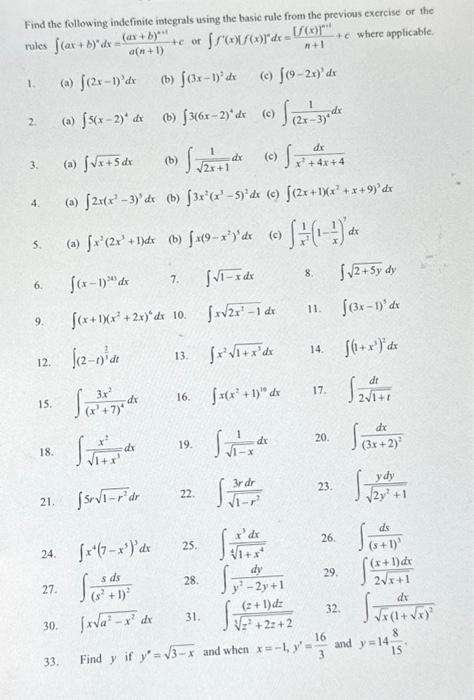 Find the following indefinite integrals using the basic rule from the previous exercise or the
rules ∫(ax+b)ⁿdx = (ax+b)ⁿ⁺¹/a(n+1) + c or ∫f'(x)[f(x)]ⁿdx = [f(x)]ⁿ⁺¹/n+1 + c where applicable.
1. (a) ∫(2x−1)³dx (b) ∫(3x−1)²dx (c) ∫(9−2x)³dx
2. (a) ∫5(x−2)⁴ dx (b) ∫3(6x−2)⁴ dx (c) ∫1/(2x−3)⁴ dx
3. (a) ∫√(x+5) dx (b) ∫1/√(2x+1) dx (c) ∫dx/(x²+4x+4)
4. (a) ∫2x(x²−3)⁵dx (b) ∫3x²(x³−5)²dx (c) ∫(2x+1)(x²+x+9)³dx
5. (a) ∫x²(2x³+1)dx (b) ∫x(9−x²)⁵dx (c) ∫1/x²(1−1/x)⁷dx
6. ∫(x−1)²⁴³dx 7. ∫√(1−x) dx 8. ∫√(2+5y) dy
9. ∫(x+1)(x²+2x)⁶dx 10. ∫x√(2x²−1) dx 11. ∫(3x−1)⁵dx
12. ∫(2−t)^(2/3)dt 13. ∫x²√(1+x³)dx 14. ∫(1+x³)²dx
15. ∫3x²/(x³+7)⁴ dx 16. ∫x(x²+1)¹⁰ dx 17. ∫dt/2√(1+t)
18. ∫x²/√(1+x³) dx 19. ∫1/√(1−x) dx 20. ∫dx/(3x+2)²
21. ∫5r√(1−r²)dr 22. ∫3r dr/√(1−r²) 23. ∫y dy/√(2y²+1)
24. ∫x⁴(7−x⁵)³dx 25. ∫x³dx/∜(1+x⁴) 26. ∫ds/(s+1)³
27. ∫s ds/(s²+1)² 28. ∫dy/(y²−2y+1) 29. ∫(x+1)dx/2√(x+1)
30. ∫x√(a²−x²) dx 31. ∫(z+1)dz/∛(z²+2z+2) 32. ∫dx/√x(1+√x)²
33. Find y if y″=√(3−x) and when x=−1, y′=16/3 and y=14 8/15.